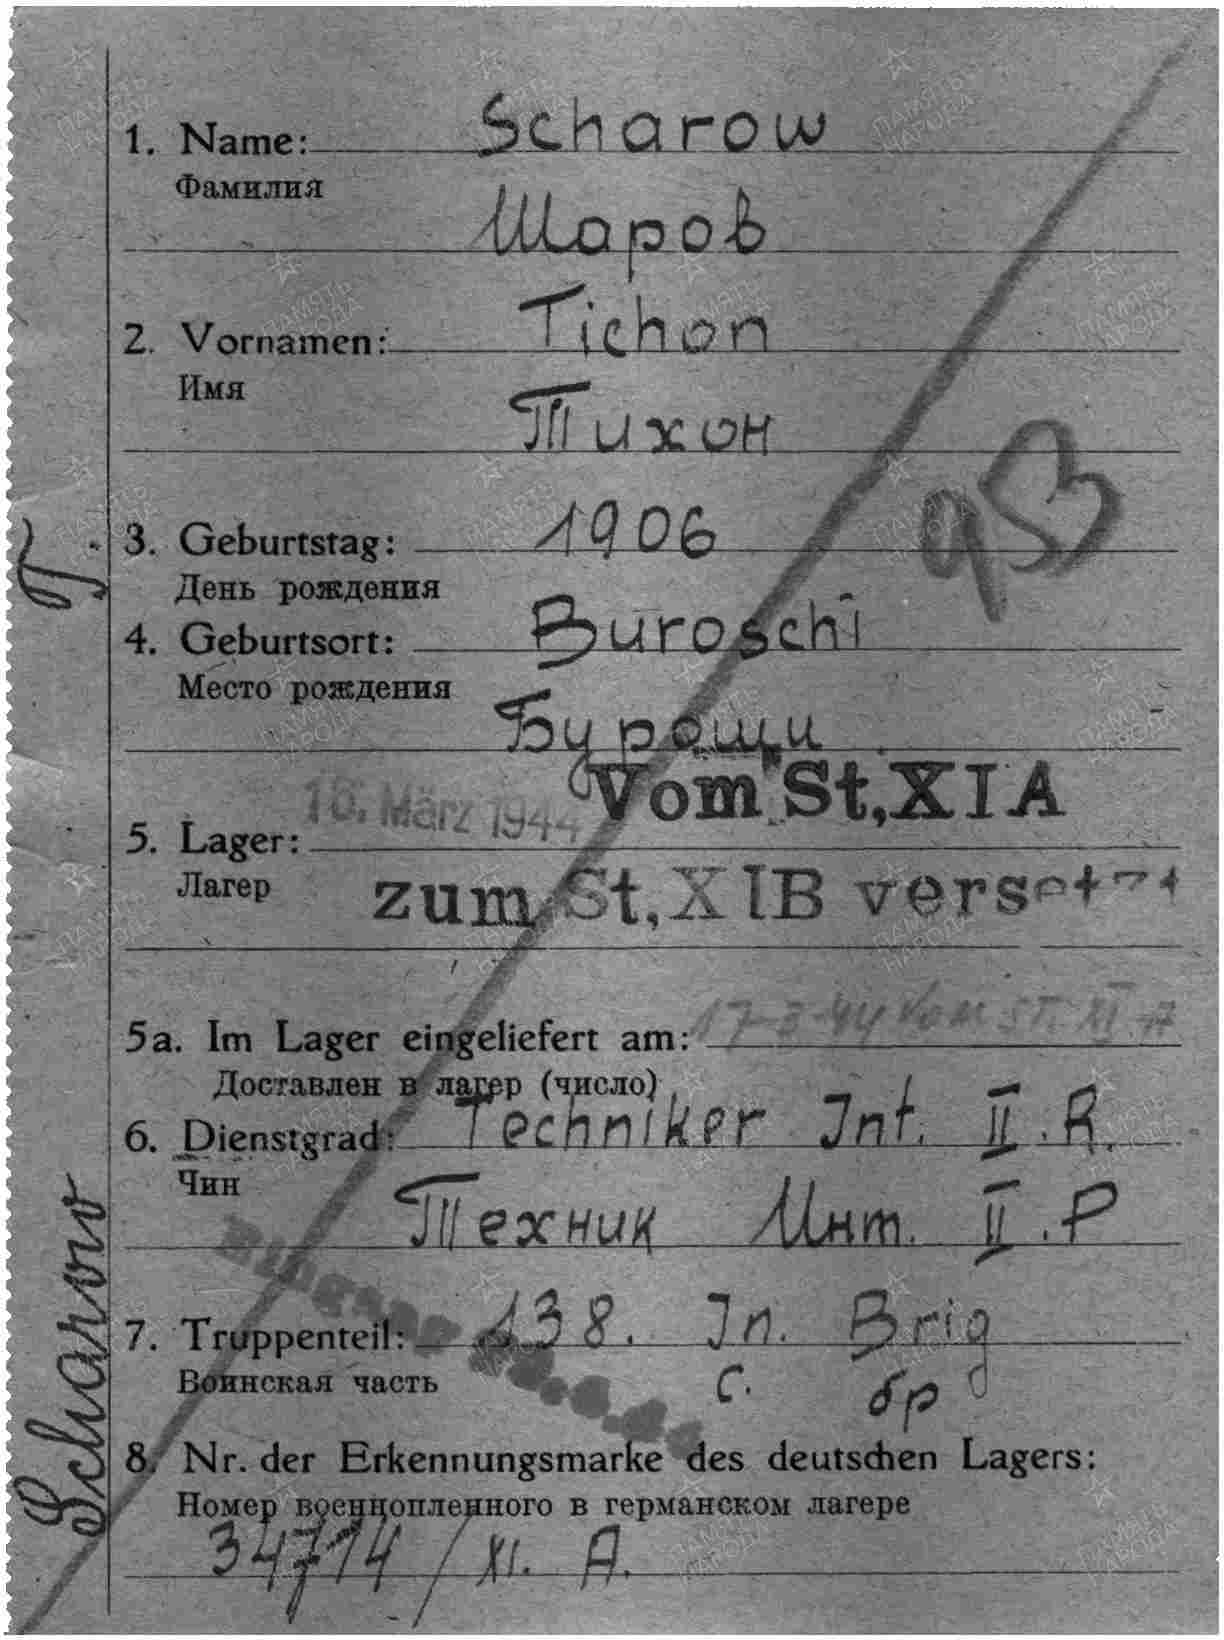 1. Name: Scharow
Фамилия
Шаров
2. Vornamen: Tichon
Имя
Тихон
953
3. Geburtstag: 1906
День рождения
4. Geburtsort: Buroschi
Место рождения
Бурощи
Vom St,XIA
16. März 1944
5. Lager:
Лагер
zum St,XIB versetzt
5a. Im Lager eingeliefert am: 17-3-44 Vom ST. XI A
Доставлен в лагер (число)
6. Dienstgrad: Techniker Int. II. R.
Чин
Техник Инт. II. Р
7. Truppenteil: 138. In. Brig
Воинская часть с. бр
8. Nr. der Erkennungsmarke des deutschen Lagers:
Номер военнопленного в германском лагере
34714 / XI. A.
Scharow T.
ПАМЯТЬ НАРОДА